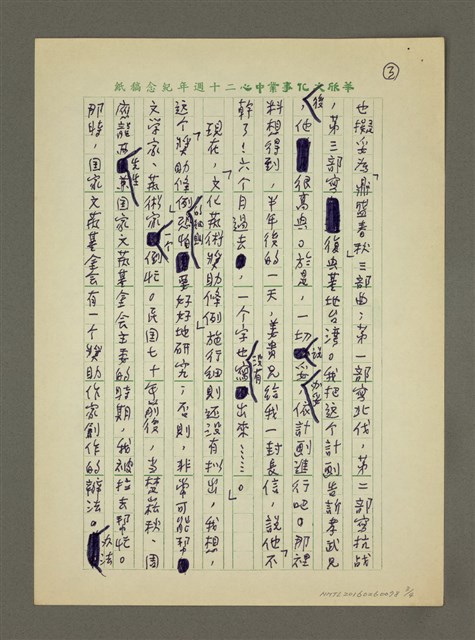 ③
華欣文化事業中心二十週年紀念稿紙
也擬妥為「鼎盛春秋」三部曲：第一部寫北伐，第二部寫抗戰
，第三部寫復興基地台湾。我把这个計劃告訴孝武兄
後，他很高興。於是，一切說妥办妥，依計劃進行吧。那裡
料想得到，半年後的一天，姜貴兄給我一封長信，說他「不
幹了！六个月過去，一个字也沒有寫出來……」。
現在，文化藝術獎助條例施行細則还没有拟出，我想，
这个「獎助條例」的細則恐怕要好好地研究；否則，非常可能幫
文学家、藝術家「倒忙」。民国七十年前後，當楚崧秋、周
應龍先生兼国家文藝基金会主委的時期，我被拉去帮忙。
那時，国家文藝基金会有一个獎助作家創作的辦法。办法
NMTL20160260098 3/6